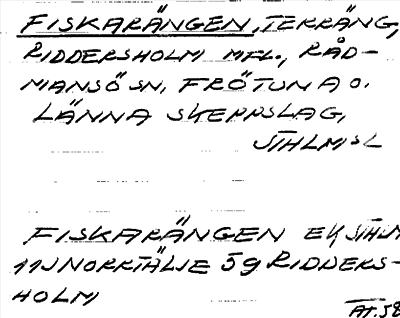 FISKARÄNGEN, TERRÄNG,
RIDDERSHOLM MFL., RÅD-
MANSÖ SN, FRÖTUNA O.
LÄNNA SKEPPSLAG,
STHLMS L
FISKARÄNGEN EK STHLM
11J NORRTÄLJE 5g RIDDERS-
HOLM
AT. 58